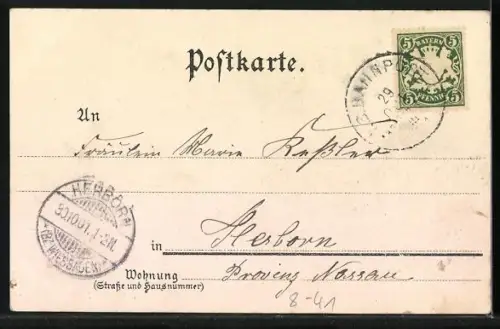 Postkarte.
BAYERN
5 5
5 PFENNIG 5
BAHNPOST
29
An
Fräulein Marie Keßler
HERBORN
30.10.01. 1-2N.
*(BZ. WIESBADEN)*
in Herborn
Wohnung Provinz Nassau
(Straße und Hausnummer)
8-41